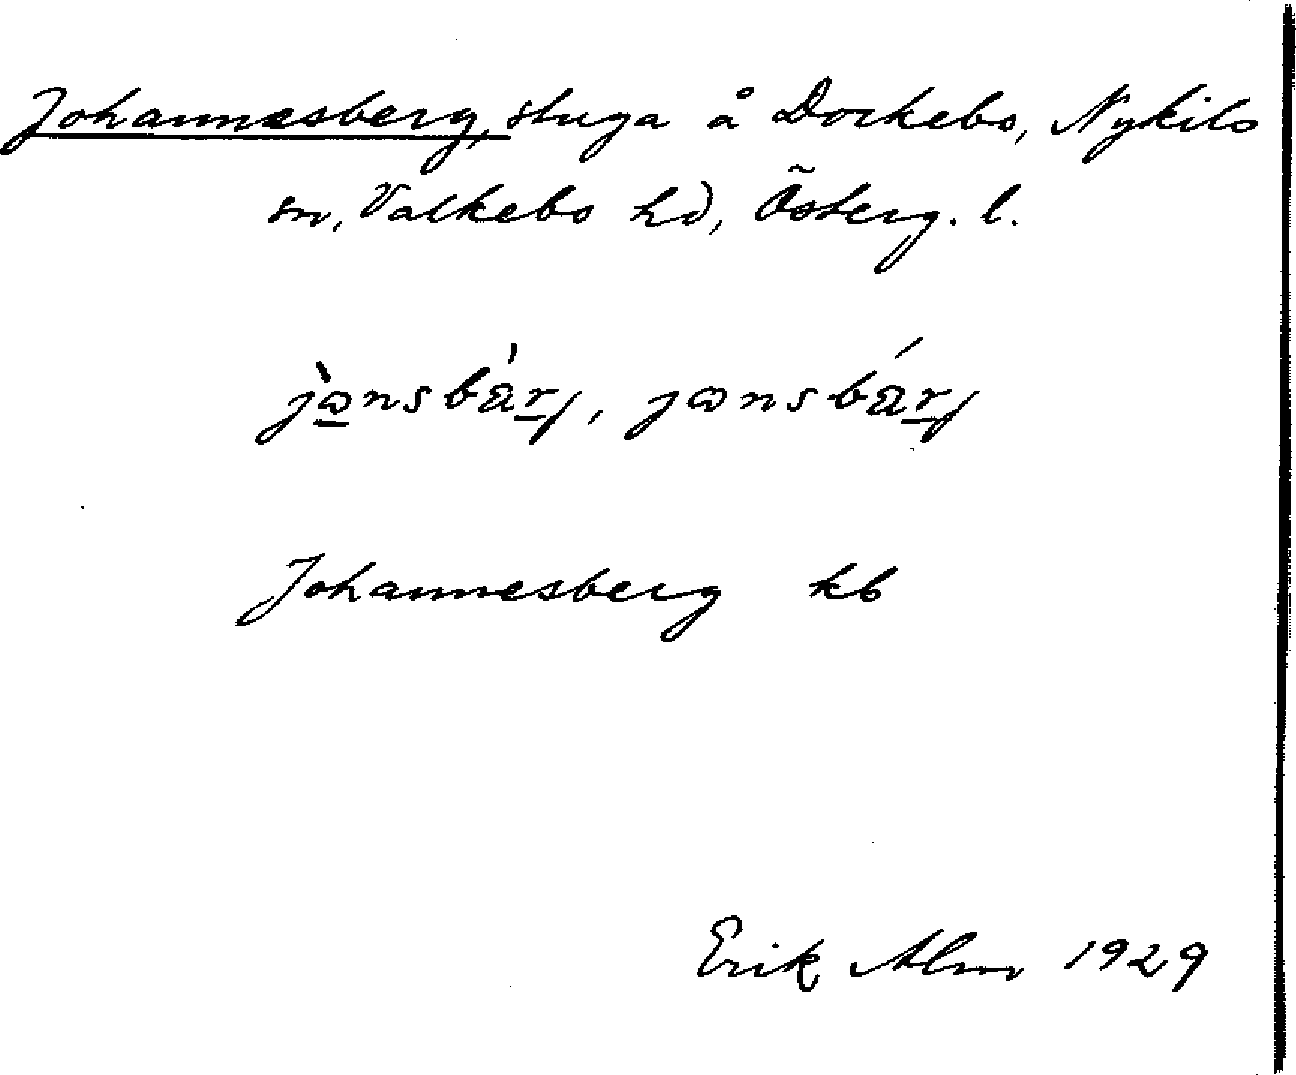 Johannesberg, stuga å Dockebo, Nykils
sn, Valkebo hd, Österg. l.
jansbärj, jansbärj
Johannesberg kb
Erik Alm 1929